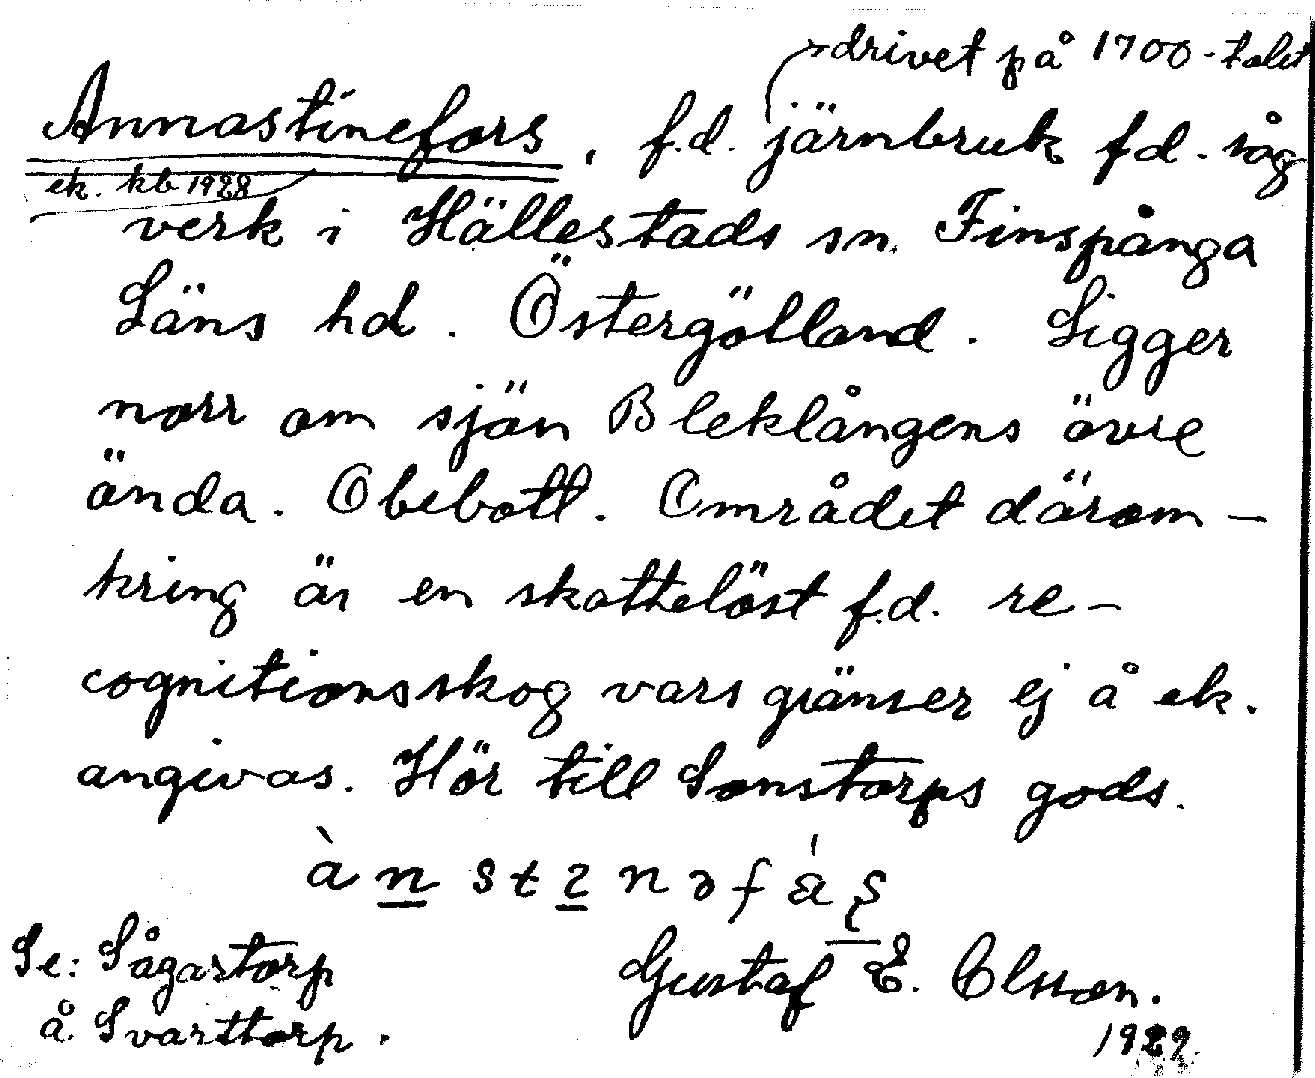 drivet på 1700-talet
Annastinefors, f.d. järnbruk f.d. såg
ek. kb 1928
verk i Hällestads sn. Finspånga
Läns hd. Östergötland. Ligger
norr om sjön Bleklångens övre
ända. Obebott. Området därom-
kring är en skattelöst f.d. re-
cognitionsskog vars gränser ej å ek.
angivas. Hör till Sonstorps gods.
Se: Sågartorp
å Svarttorp.
Gustaf E. Olsson.
1929